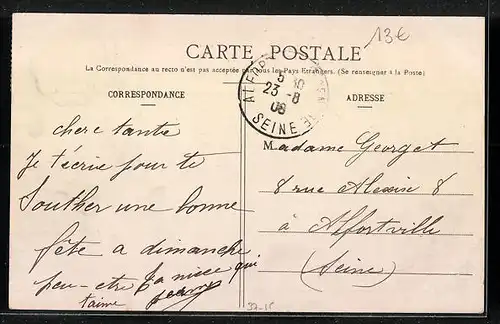 13€
CARTE POSTALE
La Correspondance au recto n'est pas acceptée par tous les Pays Etrangers. (Se renseigner à la Poste)
CORRESPONDANCE
ADRESSE
23 - 8
06
SEINE
chere tante
Je t'écrie pour te
Souther une bonne
fête a dimanche
peu-etre ta niece qui
t'aime
Madame Georget
8 rue Alexis 8
à Alfortville
(Seine)